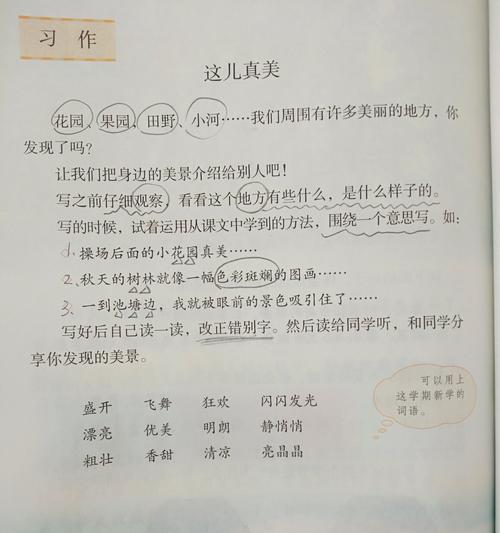 习 作
这儿真美
花园、果园、田野、小河……我们周围有许多美丽的地方，你
发现了吗？
让我们把身边的美景介绍给别人吧！
写之前仔细观察，看看这个地方有些什么，是什么样子的。
写的时候，试着运用从课文中学到的方法，围绕一个意思写。如：
1. 操场后面的小花园真美……
2. 秋天的树林就像一幅色彩斑斓的图画……
3. 一到池塘边，我就被眼前的景色吸引住了……
写好后自己读一读，改正错别字。然后读给同学听，和同学分
享你发现的美景。
可以用上
这学期新学的
词语。
盛开 飞舞 狂欢 闪闪发光
漂亮 优美 明朗 静悄悄
粗壮 香甜 清凉 亮晶晶